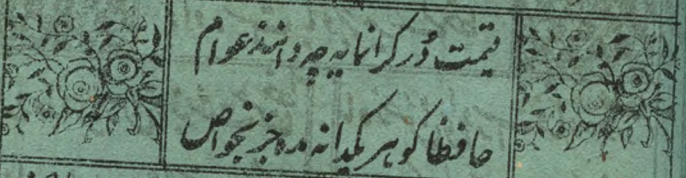 قیمت دُر کرانمایه چه دانند عوام
حافظا کوهر یکدانه مده جز بخواص